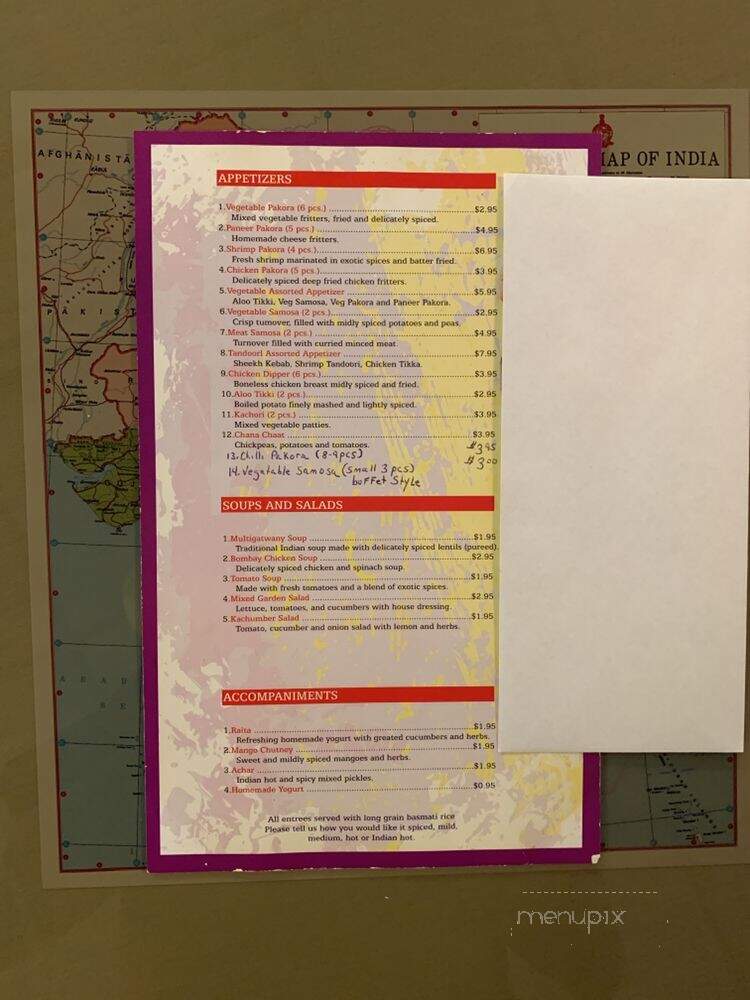 AFGHĀNISTĀ
MAP OF INDIA
PĀKIST
APPETIZERS
1.Vegetable Pakora (6 pcs.)......$2.95
Mixed vegetable fritters, fried and delicately spiced.
2.Paneer Pakora (5 pcs.)......$4.95
Homemade cheese fritters.
3.Shrimp Pakora (4 pcs.)......$6.95
Fresh shrimp marinated in exotic spices and batter fried.
4.Chicken Pakora (5 pcs.)......$3.95
Delicately spiced deep fried chicken fritters.
5.Vegetable Assorted Appetizer......$5.95
Aloo Tikki, Veg Samosa, Veg Pakora and Paneer Pakora.
6.Vegetable Samosa (2 pcs.)......$2.95
Crisp turnover, filled with midly spiced potatoes and peas.
7.Meat Samosa (2 pcs.)......$4.95
Turnover filled with curried minced meat.
8.Tandoori Assorted Appetizer......$7.95
Sheekh Kebab, Shrimp Tandoori, Chicken Tikka.
9.Chicken Dipper (6 pcs.)......$3.95
Boneless chicken breast midly spiced and fried.
10.Aloo Tikki (2 pcs.)......$2.95
Boiled potato finely mashed and lightly spiced.
11.Kachori (2 pcs.)......$3.95
Mixed vegetable patties.
12.Chana Chaat......$3.95
Chickpeas, potatoes and tomatoes.
13.Chilli Pakora (8-9pcs) $3.95
14.Vegatable Samosa (small 3 pcs) $3.00
buffet Style
SOUPS AND SALADS
1.Multigatwany Soup......$1.95
Traditional Indian soup made with delicately spiced lentils (pureed).
2.Bombay Chicken Soup......$2.95
Delicately spiced chicken and spinach soup.
3.Tomato Soup......$1.95
Made with fresh tomatoes and a blend of exotic spices.
4.Mixed Garden Salad......$2.95
Lettuce, tomatoes, and cucumbers with house dressing.
5.Kachumber Salad......$1.95
Tomato, cucumber and onion salad with lemon and herbs.
ACCOMPANIMENTS
1.Raita......$1.95
Refreshing homemade yogurt with greated cucumbers and herbs.
2.Mango Chutney......$1.95
Sweet and mildly spiced mangoes and herbs.
3.Achar......$1.95
Indian hot and spicy mixed pickles.
4.Homemade Yogurt......$0.95
All entrees served with long grain basmati rice
Please tell us how you would like it spiced, mild,
medium, hot or Indian hot.
menupix